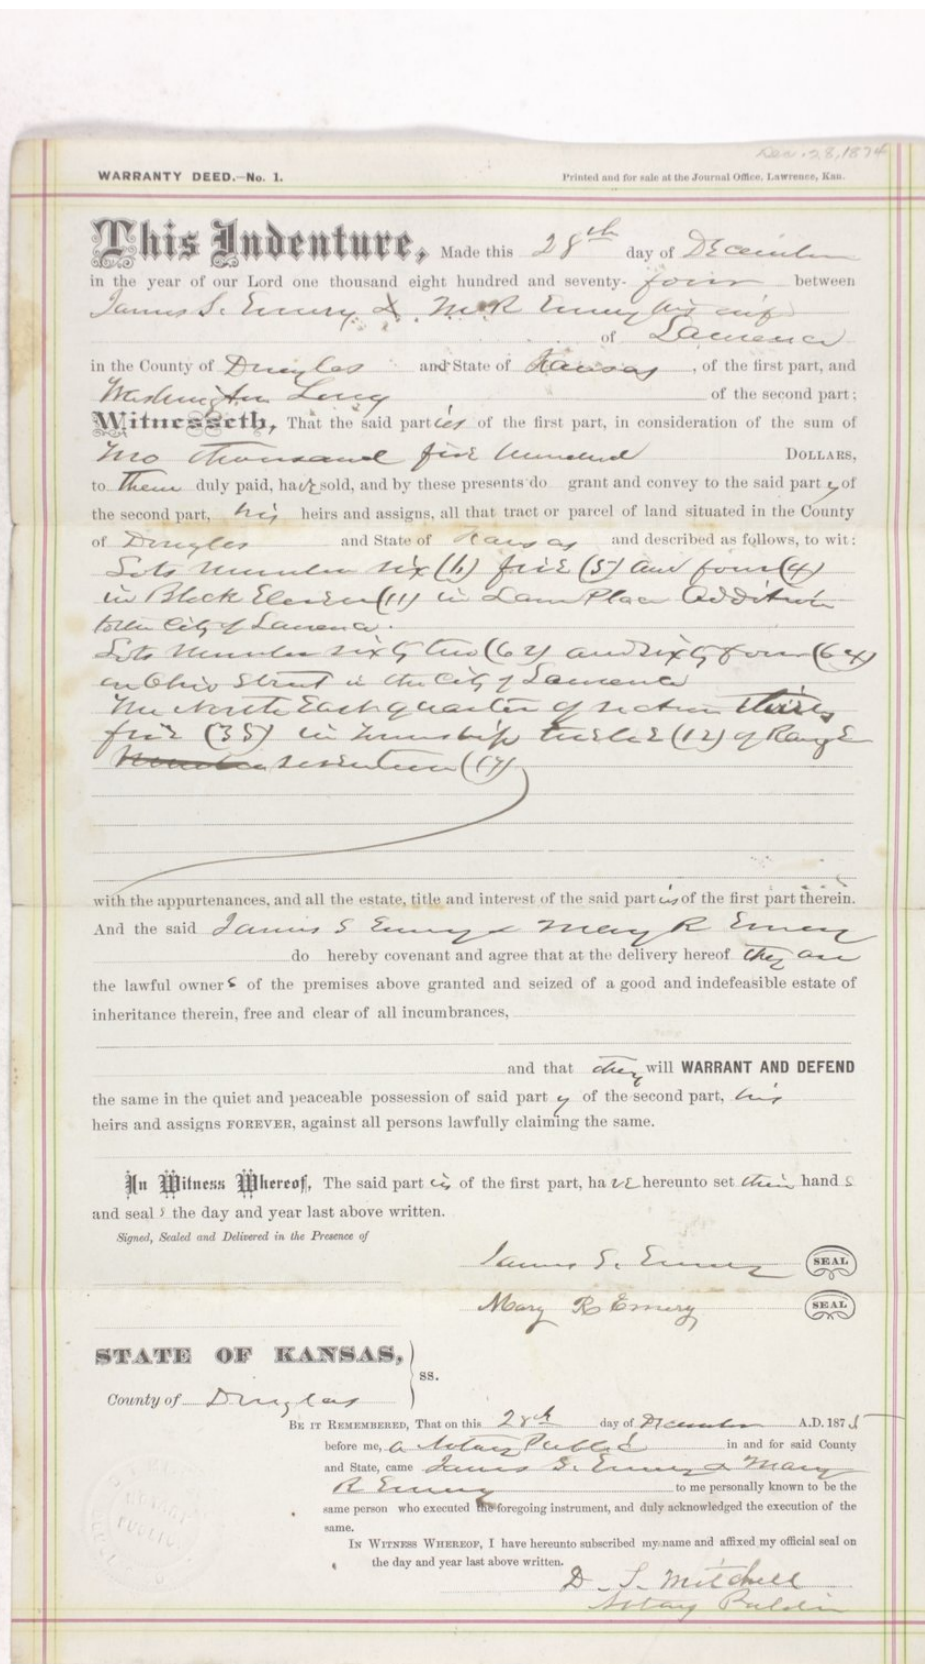 Dec. 28, 1874
WARRANTY DEED.—No. 1. Printed and for sale at the Journal Office, Lawrence, Kan.
This Indenture, Made this 28th day of December
in the year of our Lord one thousand eight hundred and seventy-four between
James S. Emery & M R Emery his wife
of Lawrence
in the County of Douglas and State of Kansas, of the first part, and
Washington Long of the second part;
Witnesseth, That the said parties of the first part, in consideration of the sum of
Two thousand five hundred DOLLARS,
to them duly paid, have sold, and by these presents do grant and convey to the said party of
the second part, his heirs and assigns, all that tract or parcel of land situated in the County
of Douglas and State of Kansas and described as follows, to wit:
Lots number six (6) five (5) and four (4)
in Block Eleven (11) in Place Addition
to the City of Lawrence.
Lots number sixty two (62) and sixty four (64)
on Ohio Street in the City of Lawrence
The North East quarter of section thirty
five (35) in Township twelve (12) of Range
seventeen (17)
with the appurtenances, and all the estate, title and interest of the said parties of the first part therein.
And the said James S Emery & Mary R Emery
do hereby covenant and agree that at the delivery hereof they are
the lawful owners of the premises above granted and seized of a good and indefeasible estate of
inheritance therein, free and clear of all incumbrances,
and that they will WARRANT AND DEFEND
the same in the quiet and peaceable possession of said party of the second part, his
heirs and assigns FOREVER, against all persons lawfully claiming the same.
In Witness Whereof, The said parties of the first part, have hereunto set their hands
and seals the day and year last above written.
Signed, Sealed and Delivered in the Presence of
James S. Emery SEAL
Mary R Emery SEAL
STATE OF KANSAS,
ss.
County of Douglas
BE IT REMEMBERED, That on this 28th day of December A.D. 1875
before me, a Notary Public in and for said County
and State, came James S. Emery & Mary
R Emery to me personally known to be the
same person who executed the foregoing instrument, and duly acknowledged the execution of the
same.
IN WITNESS WHEREOF, I have hereunto subscribed my name and affixed my official seal on
the day and year last above written.
D. S. Mitchell
Notary Public